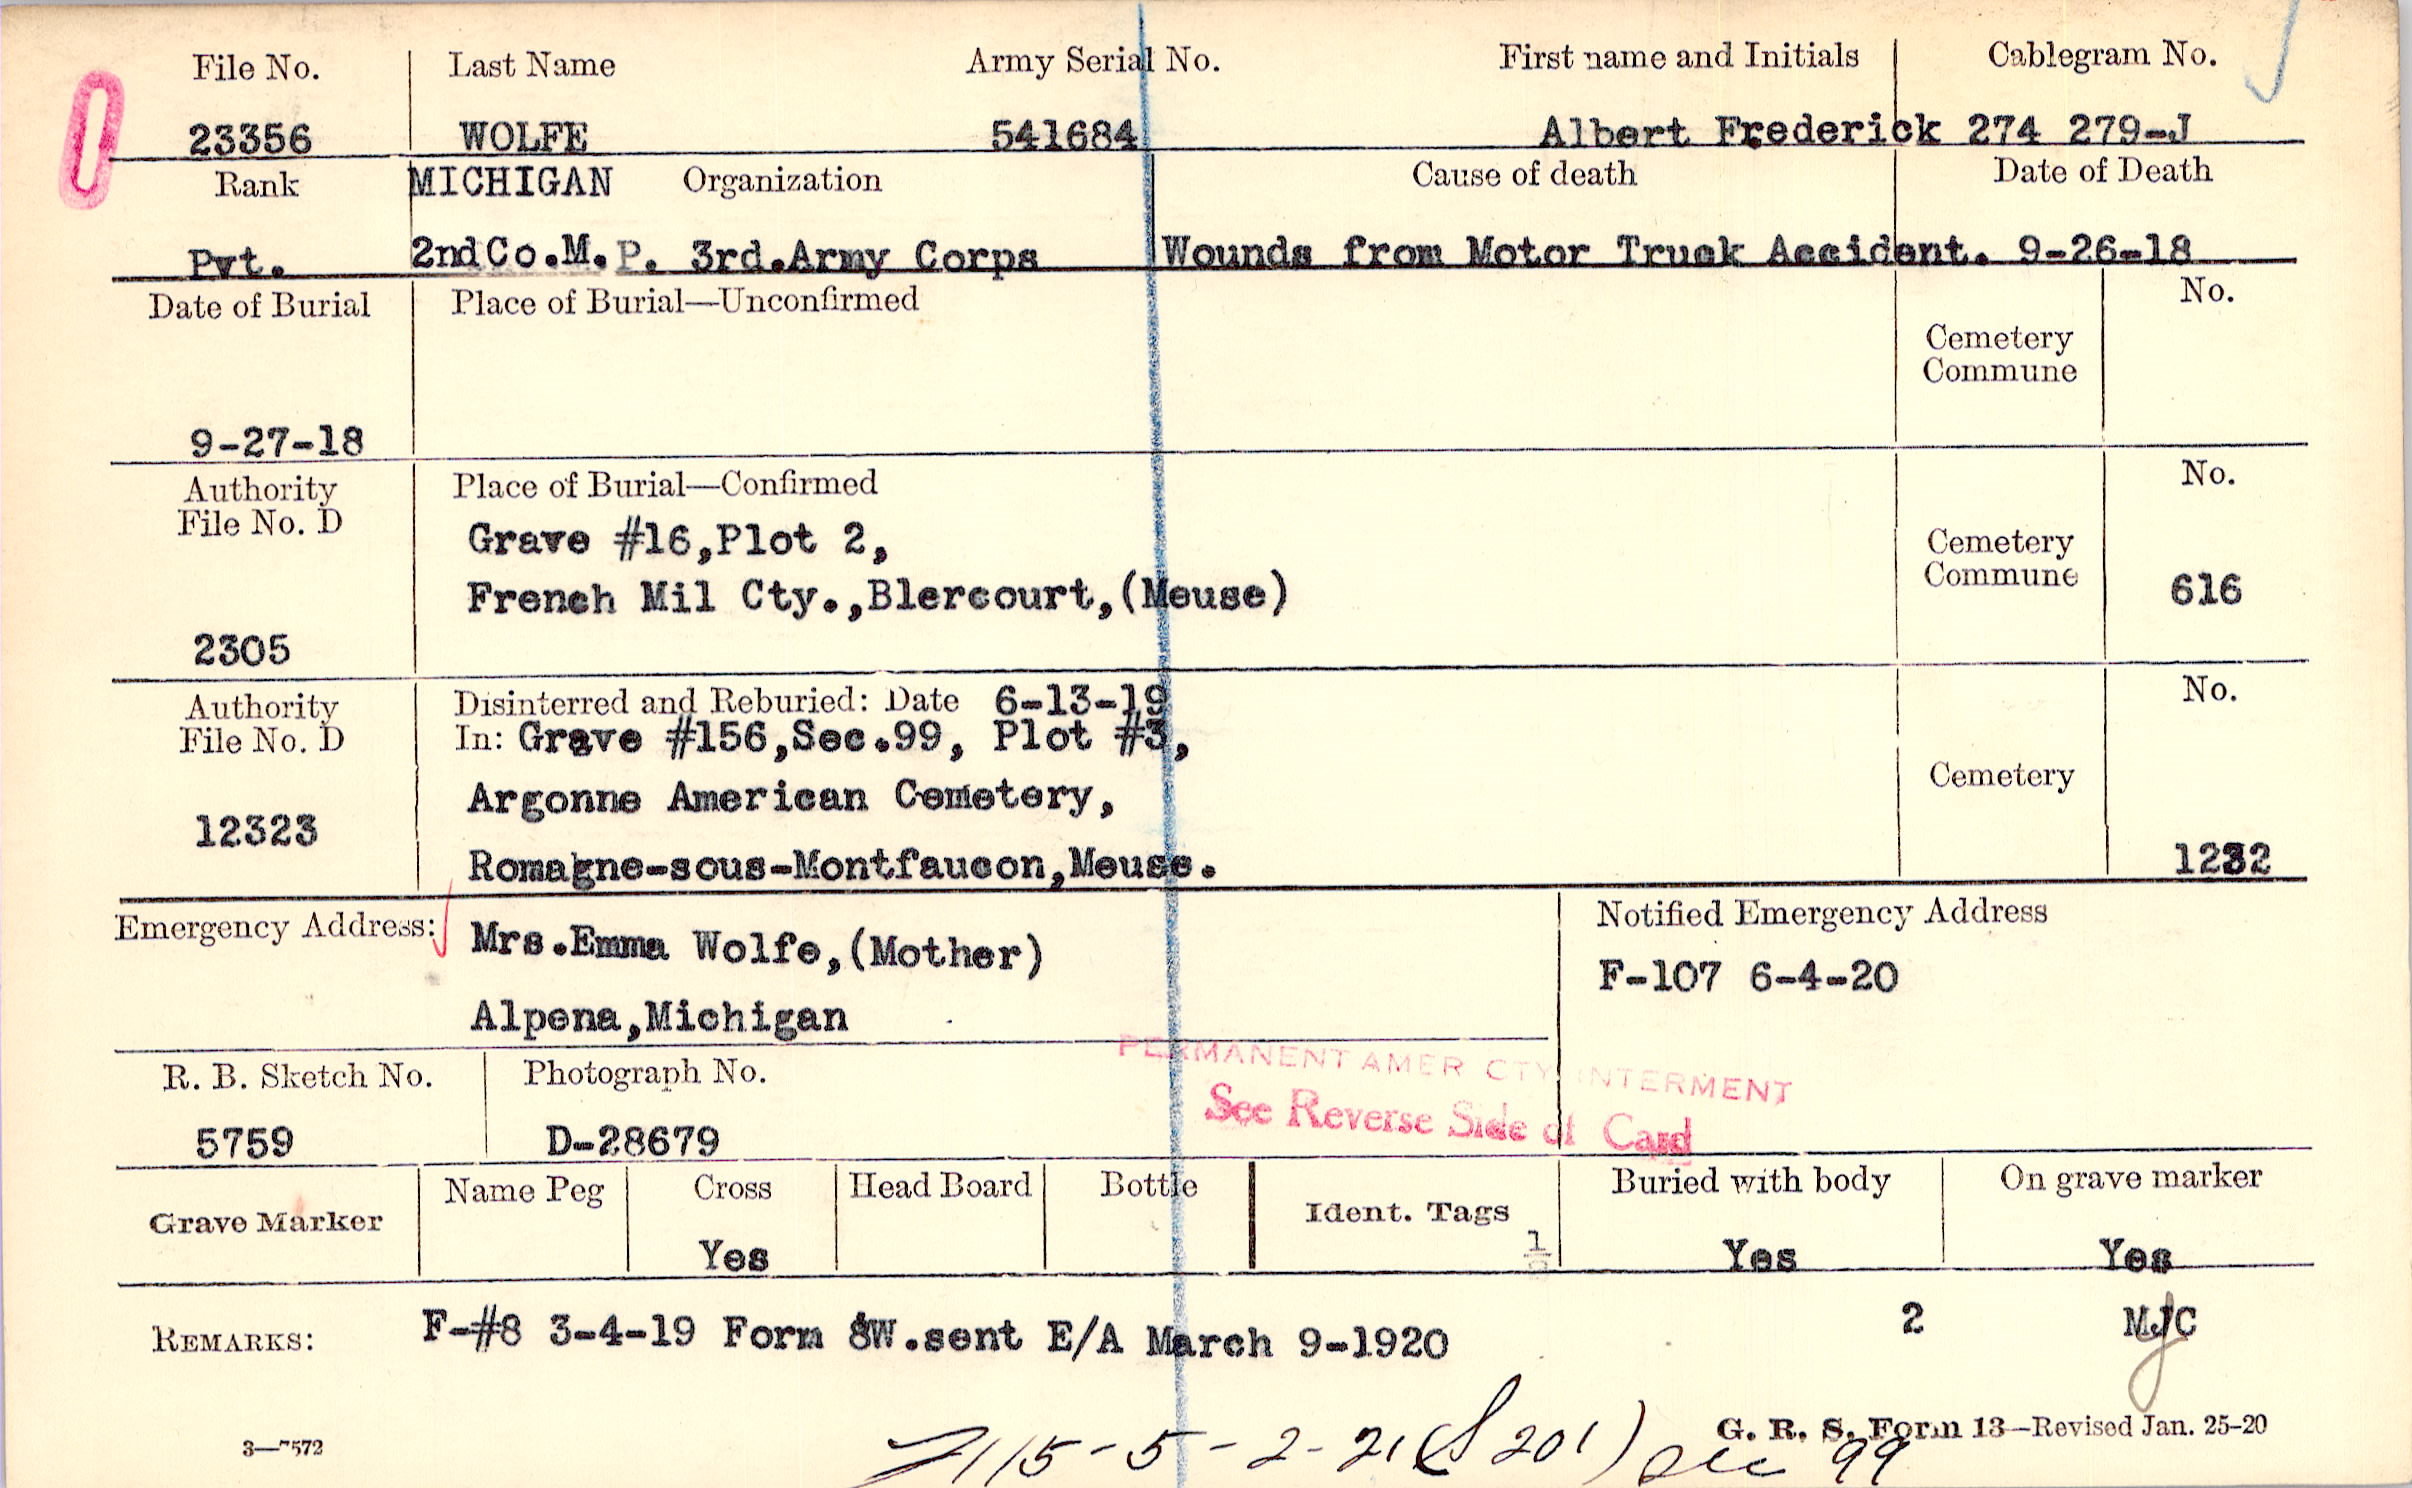 File No. Last Name Army Serial No. First name and Initials Cablegram No.
23356 WOLFE 541684 Albert Frederick 274 279-J
Rank MICHIGAN Organization Cause of death Date of Death
Pvt. 2ndCo.M.P. 3rd.Army Corps Wounds from Motor Truck Accident. 9-26-18
Date of Burial Place of Burial—Unconfirmed No.
Cemetery
Commune
9-27-18
Authority Place of Burial—Confirmed No.
File No. D
Grave #16,Plot 2, Cemetery
French Mil Cty.,Blercourt,(Meuse) Commune 616
2305
Authority Disinterred and Reburied: Date 6-13-19 No.
File No. D In: Grave #156,Sec.99, Plot #3,
Argonne American Cemetery, Cemetery
12323
Romagne-sous-Montfaucon,Meuse. 1232
Emergency Address: Mrs.Emma Wolfe,(Mother) Notified Emergency Address
F-107 6-4-20
Alpena,Michigan
PERMANENT AMER CTY INTERMENT
R. B. Sketch No. Photograph No.
See Reverse Side of Card
5759 D-28679
Grave Marker Name Peg Cross Head Board Bottle Ident. Tags Buried with body On grave marker
Yes 1 Yes Yes
REMARKS: F-#8 3-4-19 Form 8W.sent E/A March 9-1920 2 MJC
3—7572 G. R. S. Form 13—Revised Jan. 25-20
115-5-2-21 (S 201) Sec 99